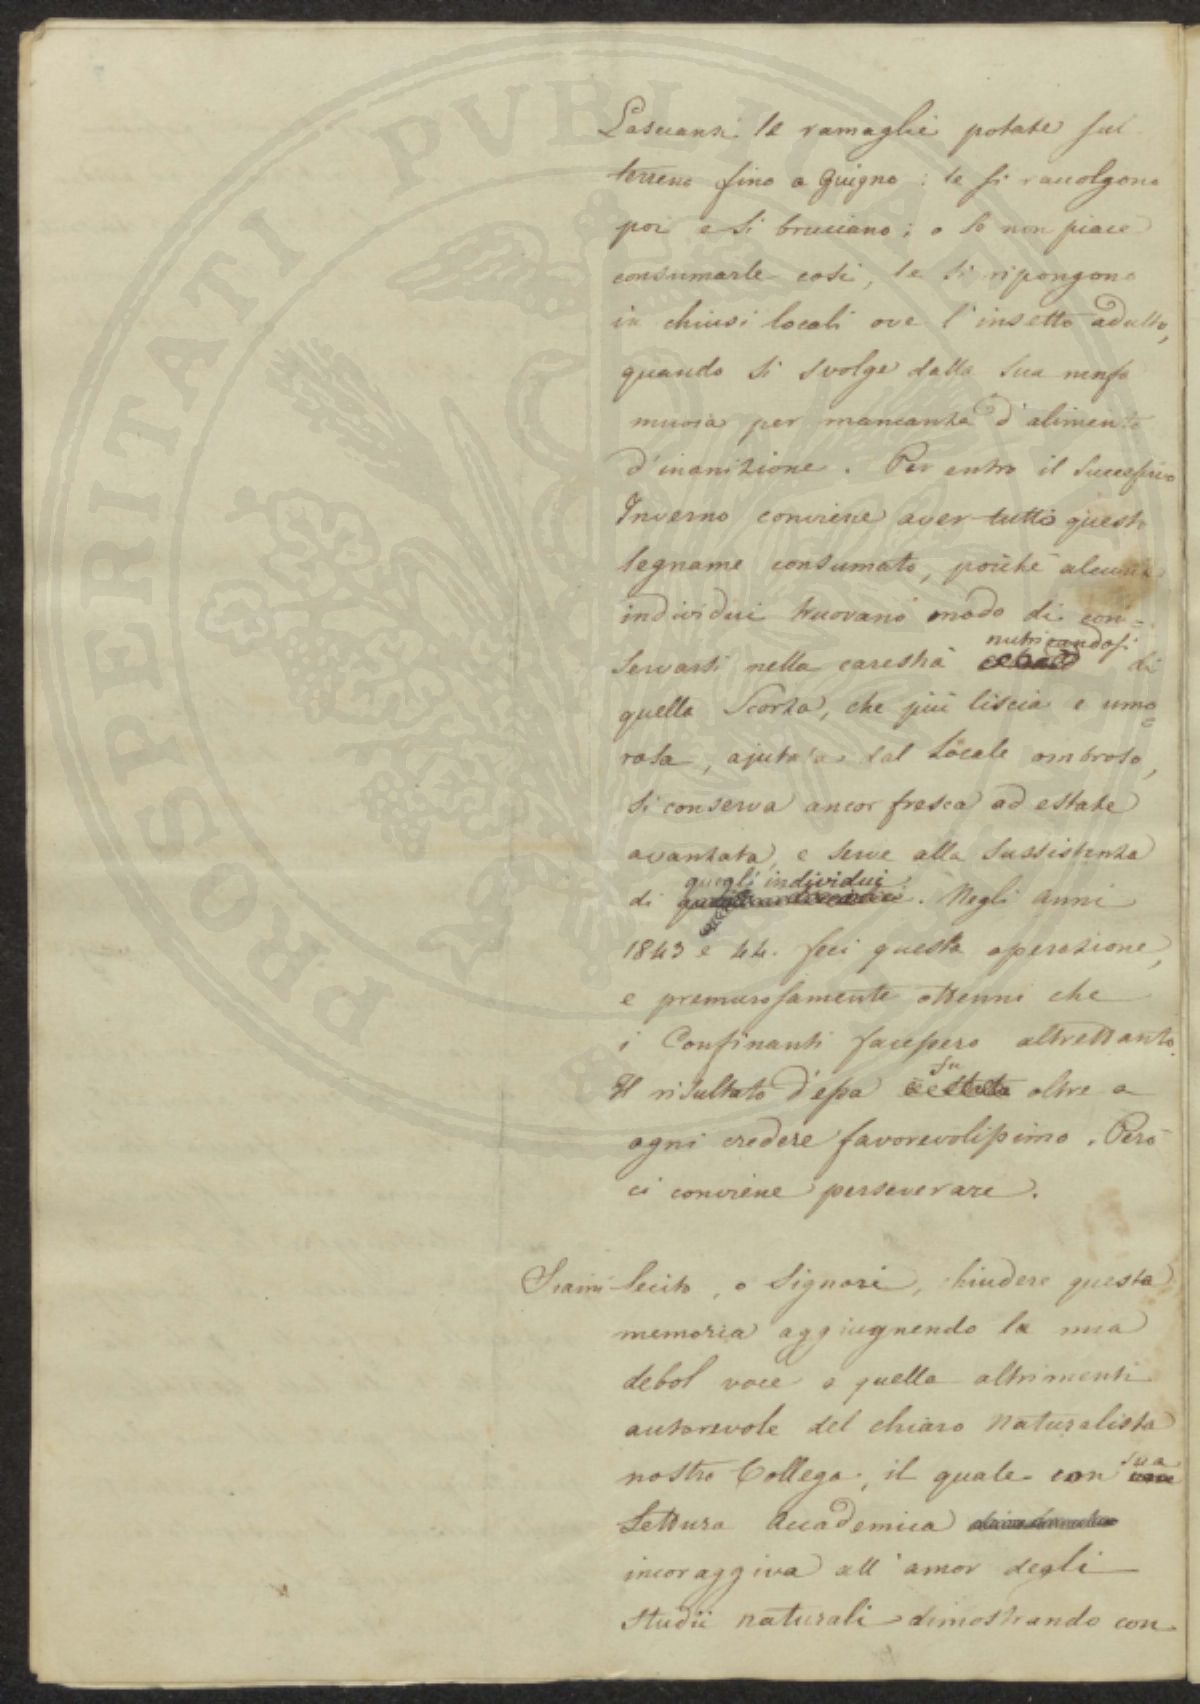 PROSPERITATI PVBLICAE
Lasciansi le ramaglie potate sul
terreno fino a Giugno: le si raccolgono
poi e si bruciano; o se non piace
consumarle così, le si ripongono
in chiusi locali ove l'insetto adulto,
quando si svolge dalla sua ninfa
muoia per mancanza d'alimento
d'inanizione. Per entro il successivo
Inverno conviene aver tutto questo
legname consumato, poichè alcuni
individui truovano modo di con=
servarsi nella carestia nutricandosi di
quella scorza, che più liscia e umo=
rosa, ajutata dal locale ombroso,
si conserva ancor fresca ad estate
avanzata, e serve alla sussistenza
di quegli individui. Negli anni
1843 e 44. feci questa operazione,
e premurosamente ottenni che
i Confinanti facessero altrettanto.
Il risultato d'essa fu oltre a
ogni credere favorevolissimo. Però
ci conviene perseverare.
Siami lecito, o Signori, chiudere questa
memoria aggiugnendo la mia
debol voce a quella altrimenti
autorevole del chiaro Naturalista
nostro Collega, il quale con sua
Lettura Accademica
incoraggiva all'amor degli
studii naturali dimostrando con